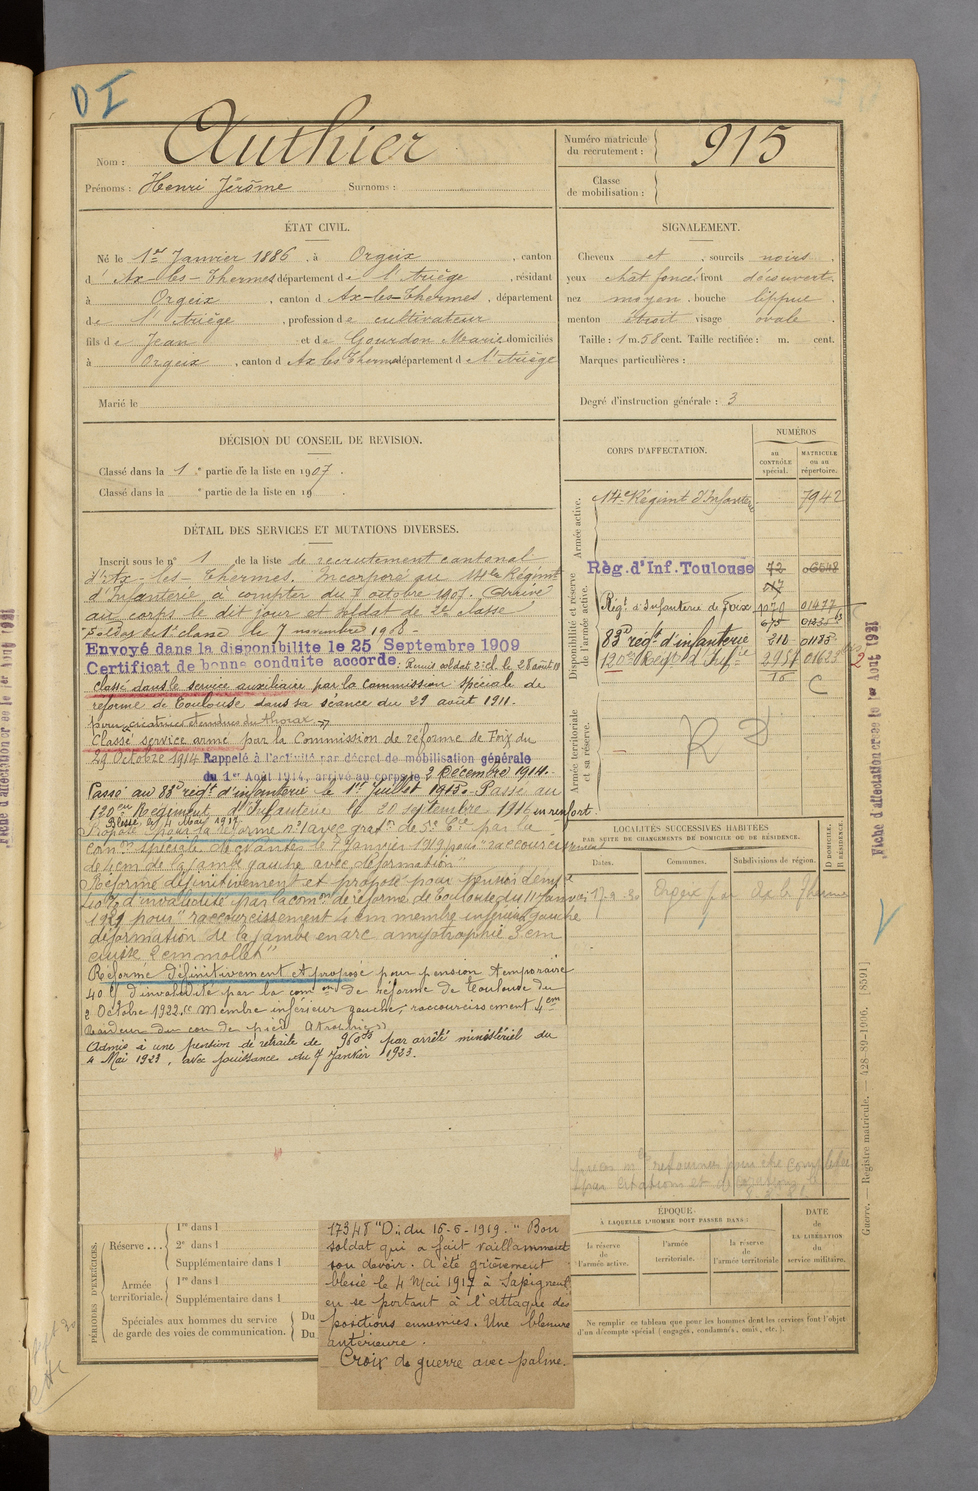 D I
Nom : Authier
Prénoms : Henri Jérôme Surnoms :
Numéro matricule du recrutement : 915
Classe de mobilisation :
ÉTAT CIVIL.
Né le 1er Janvier 1886, à Orgeix, canton
d' Ax-les-Thermes département de l'Ariège, résidant
à Orgeix, canton d Ax-les-Thermes, département
de l'Ariège, profession de cultivateur
fils de Jean et de Gourdon Marie domiciliés
à Orgeix, canton d Ax les Thermes département de l'Ariège
Marié le
SIGNALEMENT.
Cheveux et, sourcils noirs,
yeux chât. foncé, front découvert,
nez moyen, bouche lippue,
menton étroit visage ovale.
Taille : 1 m. 58 cent. Taille rectifiée : m. cent.
Marques particulières :
Degré d'instruction générale : 3
DÉCISION DU CONSEIL DE REVISION.
Classé dans la 1e partie de la liste en 1907.
Classé dans la e partie de la liste en 19 .
DÉTAIL DES SERVICES ET MUTATIONS DIVERSES.
Inscrit sous le n° 1 de la liste de recrutement cantonal
d'Ax-les-Thermes. Incorporé au 14e Régiment
d'Infanterie à compter du 7 octobre 1907. Arrivé
au corps le dit jour et soldat de 2e classe
Soldat de 1e classe le 7 novembre 1908 -
Envoyé dans la disponibilite le 25 Septembre 1909
Certificat de bonne conduite accordé. Remis soldat 2e cl. le 28 août 19
Classé dans le service auxiliaire par la Commission spéciale de
réforme de Toulouse dans sa séance du 29 août 1911.
pour cicatrices étendues du thorax
Classé service armé par la Commission de réforme de Foix du
29 Octobre 1914 Rappelé à l'activité par décret de mobilisation générale
du 1er Août 1914, arrivé au corps le 2 Décembre 1914.
Passé au 83e régt d'infanterie le 1er Juillet 1915. Passé au
120eme Régiment d'Infanterie le 20 septembre 1916 en renfort.
Blessé le 4 Mai 1917
Proposé pour la réforme n° 1 avec grat°n de 5e Cie par la
com°n spéciale de le 7 Janvier 1919 pour "raccourcissement
de 4cm de la jambe gauche avec déformation"
Réformé définitivement et proposé pour pension temp.
40% d'invalidité par la com°n de réforme de Toulouse du 11 Janvier
1921 pour "raccourcissement 4 cm membre inférieur gauche
déformation de la jambe en arc amyotrophie 3 cm
cuisse 2 cm mollet"
Réformé définitivement et proposé pour pension temporaire
40 % d'invalidité par la com°n de réforme de Toulouse du
2 Octobre 1922 "Membre inférieur gauche, raccourcissement 4cm
Raideur du cou de pied. Atrophie"
Admis à une pension de retraite de 960f par arrêté ministériel du
4 Mai 1923, avec jouissance du 7 Janvier 1923.
CORPS D'AFFECTATION.
NUMÉROS
au CONTRÔLE spécial.
MATRICULE ou au répertoire.
Armée active.
14e Régimt d'Infanterie 7942
Disponibilité et réserve de l'armée active.
Règ. d'Inf. Toulouse 72 06548
Régt d'Infanterie de Foix 1070 01477
675 01335
83e régt d'infanterie 210 01135
120e Régt d'Infie 2958 01623
15 C
Armée territoriale et sa réserve.
R D
LOCALITÉS SUCCESSIVES HABITÉES
PAR SUITE DE CHANGEMENTS DE DOMICILE OU DE RÉSIDENCE.
Dates. Communes. Subdivisions de région.
D DOMICILE. R RÉSIDENCE.
17-9-30 Orgeix par Ax les Thermes
ÉPOQUE
À LAQUELLE L'HOMME DOIT PASSER DANS :
la réserve de l'armée active.
l'armée territoriale.
la réserve de l'armée territoriale
DATE de LA LIBÉRATION du service militaire.
Ne remplir ce tableau que pour les hommes dont les services font l'objet
d'un décompte spécial (engagés, condamnés, omis, etc.).
PÉRIODES D'EXERCICES.
Réserve ...
1re dans l
2e dans l
Supplémentaire dans l
Armée territoriale.
1re dans l
Supplémentaire dans l
Spéciales aux hommes du service
de garde des voies de communication.
Du
Du
17348 "D" du 16-6-1919. "Bon
soldat qui a fait vaillamment
son devoir. A été grièvement
blessé le 4 Mai 1917 à Sapigneul
en se portant à l'attaque des
positions ennemies. Une blessure
antérieure.
Croix de guerre avec palme.
Fiche d'affectation créée le 1er Août 1921
Guerre. — Registre matricule. — 428-89-1906. [8591]